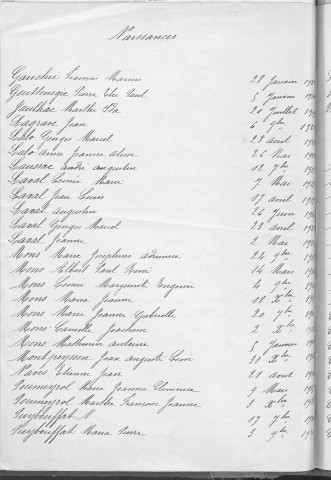 Naissances
Gauchié Francois Marin 23 Janvier
Gouttenegre Pierre Elie Paul 5 Janvier
Jaulhac Marthe Ida 20 Juillet
Lagrave Jean 6 7bre
Lalo Georges Marcel 23 avril
Lalo Anne Jeanne 26 Mai
Laussac andré augustin 12 7bre
Laval Léonie Marie 7 Mai
Laval Jean Louis 17 avril
Laval augustin 26 Juin
Laval Georges Marcel 23 avril
Laval Jeanne 2 Mai
Mons Marie Joséphine 24 9bre
Mons Albert Paul René 14 Mars
Mons Léoni Marguerite Eugénie 4 9bre
Mons Maria Jeanne 18 Xbre
Mons Marie Jeanne Gabrielle 20 7bre
Mons Camille Joachim 2 Xbre
Mons Mathurin antoine 5 Janvier
Montpeyssen Jean Auguste Léon 28 Xbre
Naves Etienne Jean 21 aout
Poumeyrol Marie Jeanne Clémence 9 Mars
Poumeyrol Marthe Francoise Jeanne 3 Xbre
Puybouffat N 17 7bre
Puybouffat Maria 3 9bre